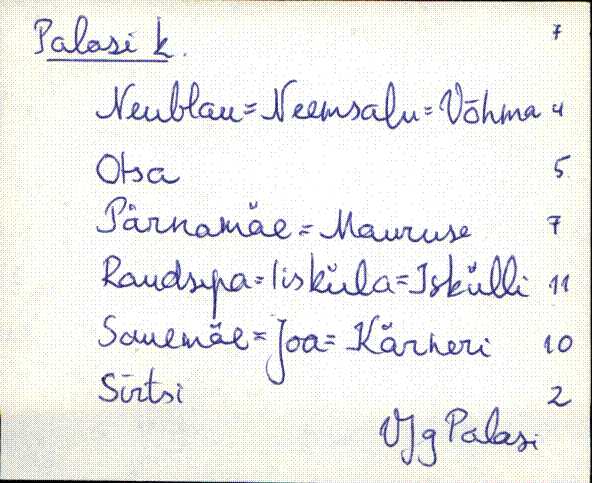 Palasi k. 7
Neublau = Neemsalu = Võhma 4
Otsa 5
Pärnamäe = Mauruse 7
Raudsepa = Iisküla = Iskülli 11
Sauemäe = Joa = Kärneri 10
Sirtsi 2
VJg Palasi